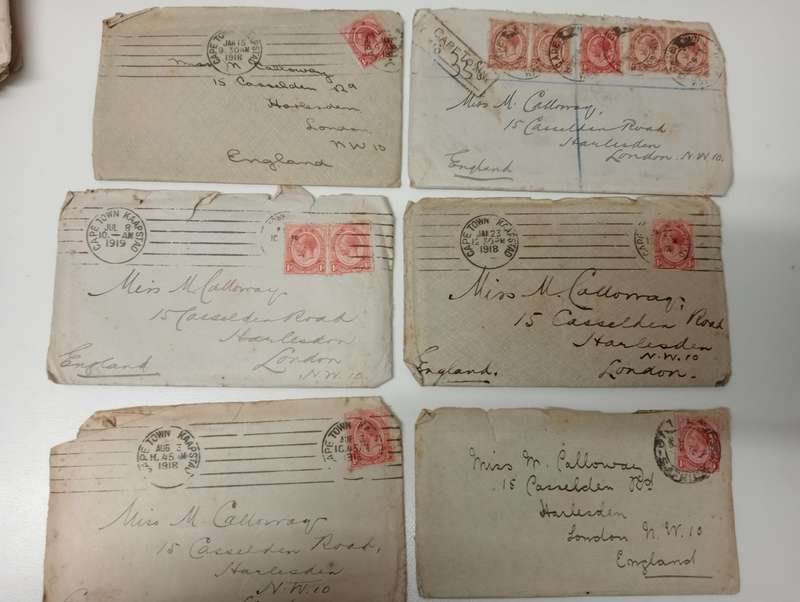 CAPE TOWN KAAPSTAD
JAN 15
9.30 AM
1918
Miss M Calloway
15 Casselden Rd
Harlesden
London
NW 10
England
CAPETOWN
Miss M. Calloway,
15 Casselden Road
Harlesden
London. N.W. 10.
England
CAPE TOWN KAAPSTAD
JUL 8
10.—AM
1919
Miss M Calloway
15 Casselden Road
Harlesdon
London
N.W. 10.
England
CAPE TOWN KAAPSTAD
JAN 23
12.30 PM
1918
Miss M. Calloway,
15 Casselden Road
Harlesden
N.W. 10
London.
England.
CAPE TOWN KAAPSTAD
AUG 3
10.45 AM
1918
CAPE TOWN
10.45
Miss M. Calloway
15 Casselden Road,
Harlesden
N.W. 10
Miss M. Calloway
15 Casselden Rd
Harlesden
London N.W. 10
England